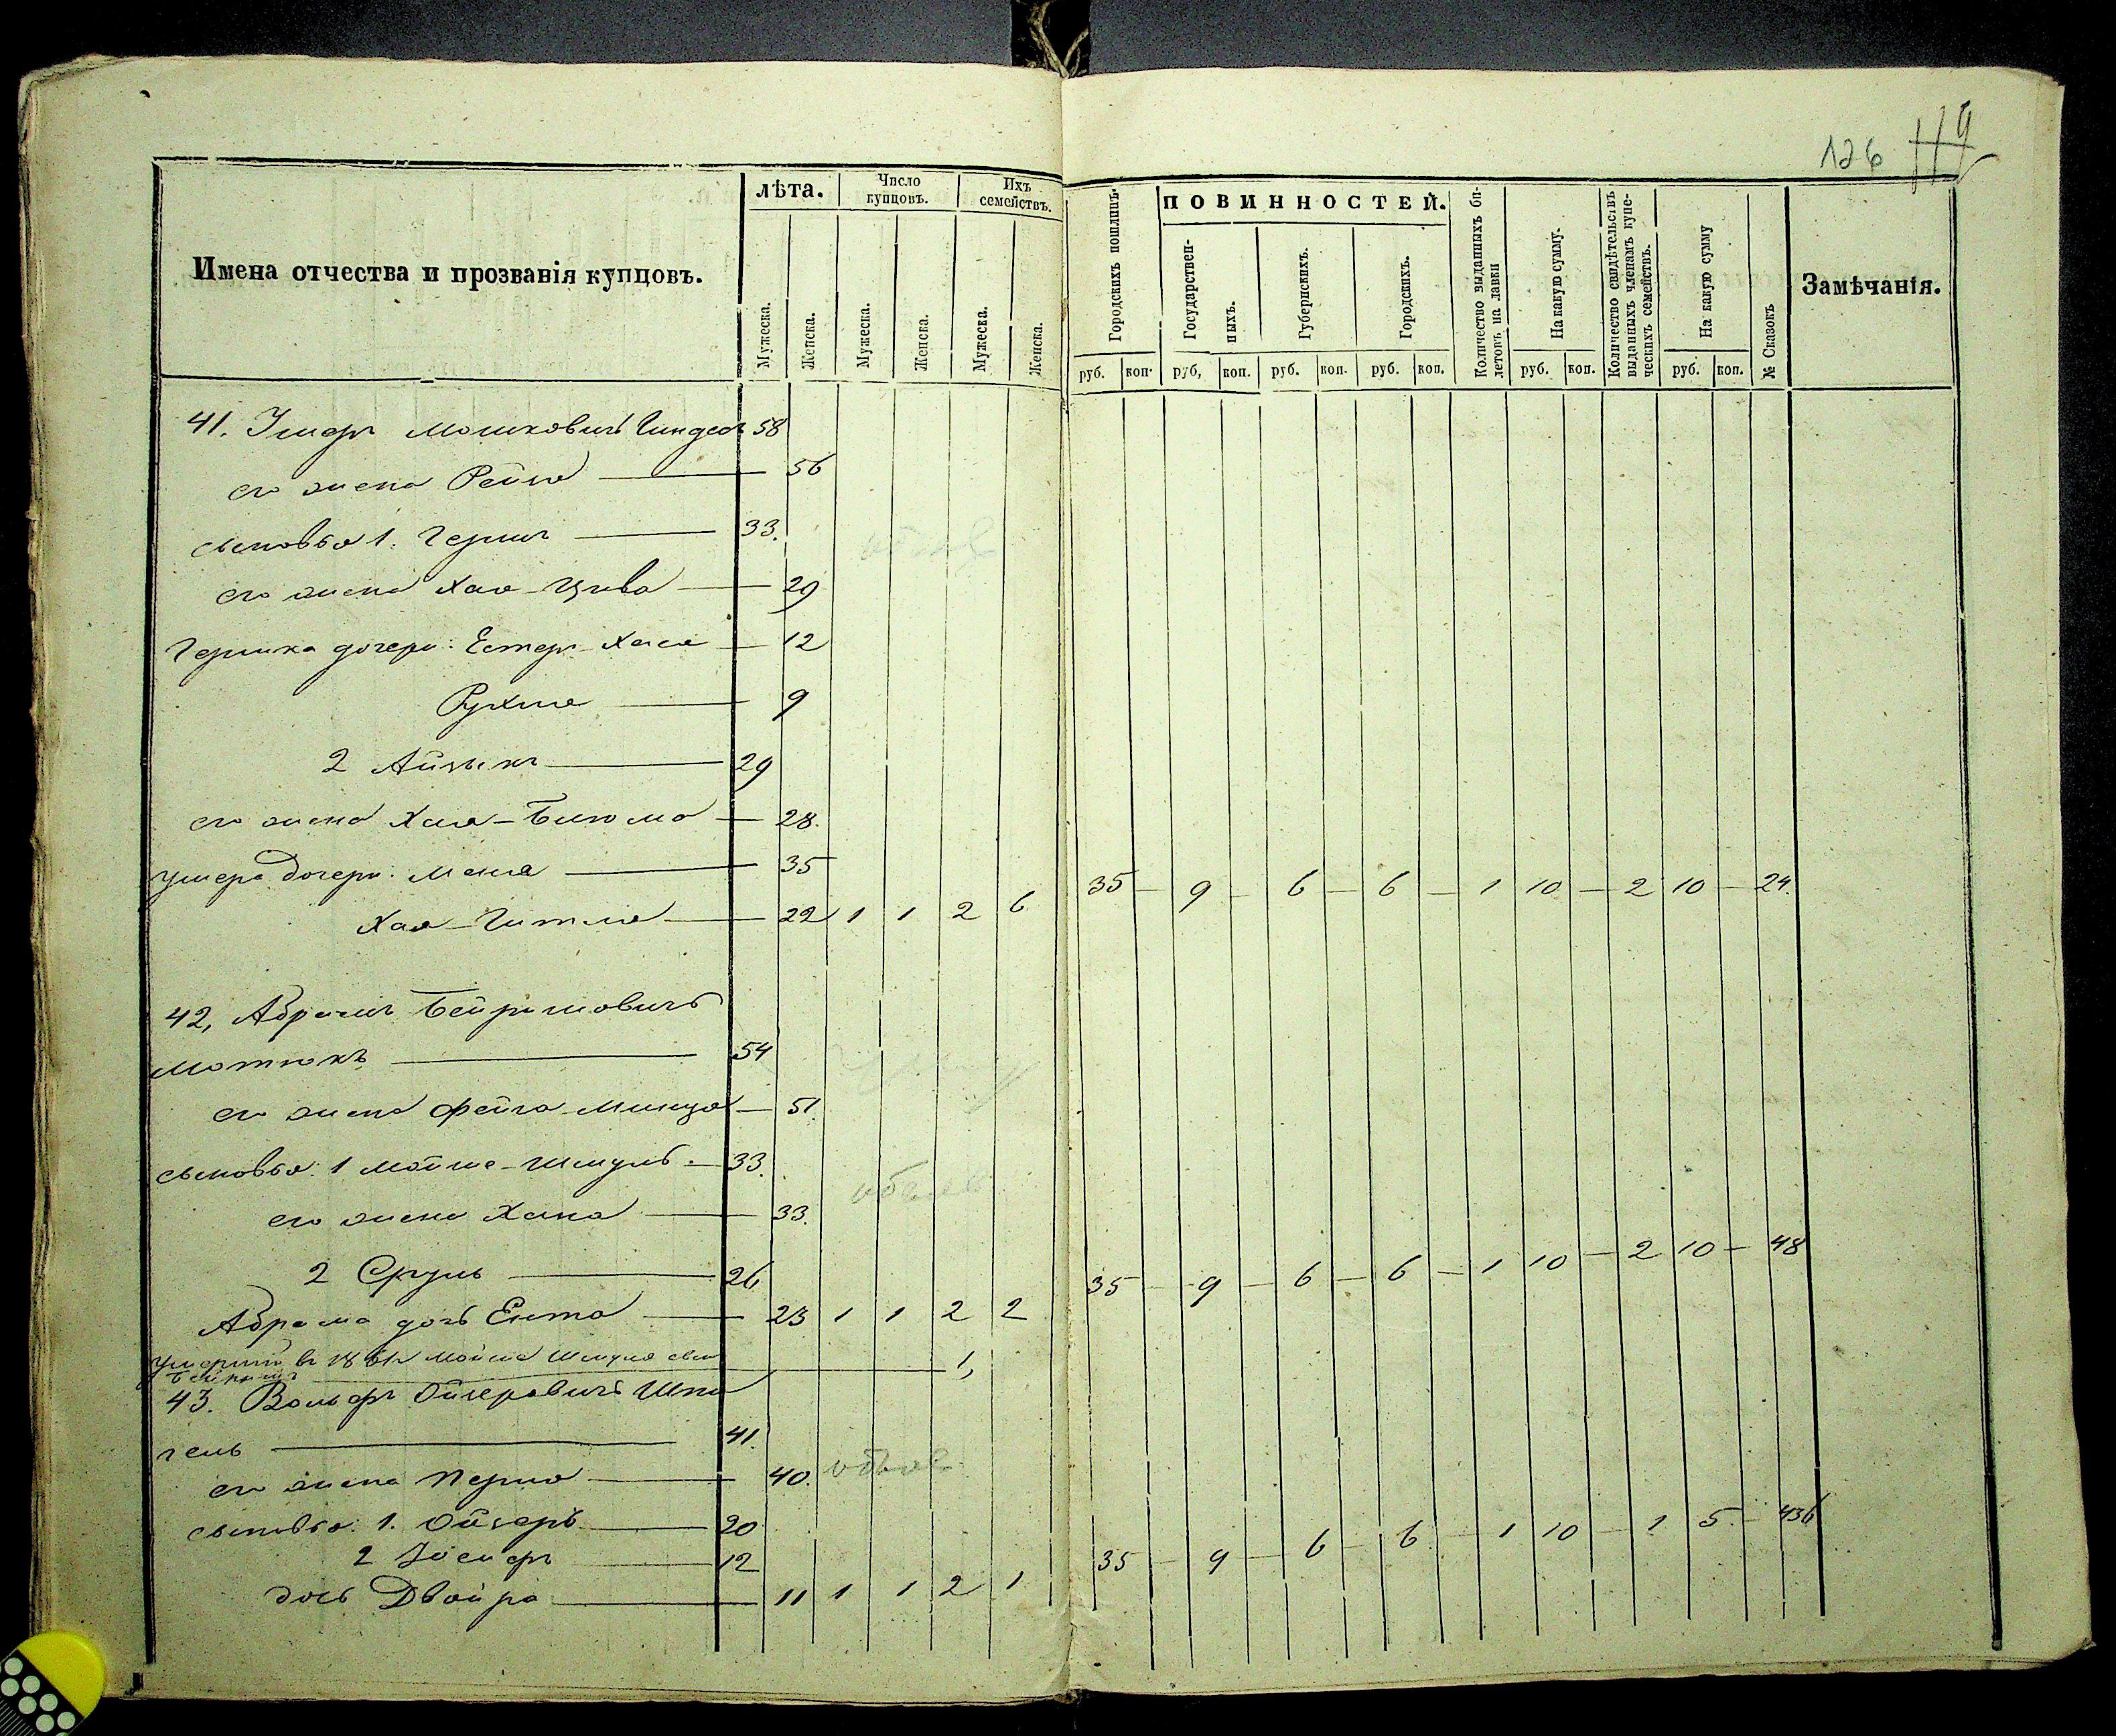 126 119
Имена отчества и прозванія купцовъ.
лѣта.
Число купцовъ.
Ихъ семействъ.
Мужеска. Женска. Мужеска. Женска. Мужеска. Женска.
Городскихъ пошлинъ.
ПОВИННОСТЕЙ.
Государственныхъ. Губернскихъ. Городскихъ.
Количество выданныхъ билетовъ на лавки
На какую сумму.
Количество свидѣтельствъ выданныхъ членамъ купеческихъ семействъ.
На какую сумму
№ Сказокъ
Замѣчанія.
руб. коп. руб, коп. руб. коп. руб. коп. руб. коп. руб. коп.
41. Ушеръ Мошковичъ Гиндесъ 58
его жена Рейза — 56
сыновья 1. Гершъ — 33.
его жена Хая-Цива — 29
Гершка дочери: Естеръ-Хася — 12
Рухля — 9
2 Айзыкъ — 29
его жена Хая-Блюма — 28.
Ушера дочери: Маня — 35
Хая-Гитля — 22 1 1 2 6 35 — 9 — 6 — 6 — 1 10 — 2 10 — 24.
42, Абрамъ Бейришовичъ
Мотюкъ — 54
его жена Фейга-Минца — 51.
сыновья: 1 Мойше-Шмуль — 33.
его жена Хана — 33.
2 Сруль — 26
Абрама дочь Ента — 23 1 1 2 2 35 — 9 — 6 — 6 — 1 10 — 2 10 — 48
Умерший въ 1861 Мойше Шмуля сынъ — 1,
43. Вольфъ Ойзеровичъ Шпи
гель — 41.
его жена Перля — 40.
сыновья: 1. Ойзеръ — 20
2 Іосифъ — 12
дочь Двойра — 11 1 1 2 1 35 — 9 — 6 — 6 — 1 10 — 1 5 — 436